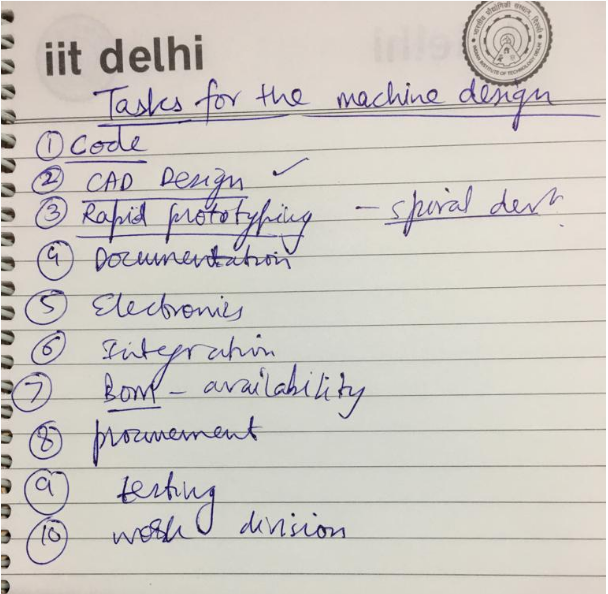 iit delhi
Tasks for the machine design
① Code
② CAD Design ✓
③ Rapid prototyping - spiral
④ Documentation
⑤ Electronics
⑥ Integration
⑦ BOM - availability
⑧ procurement
⑨ testing
⑩ work division